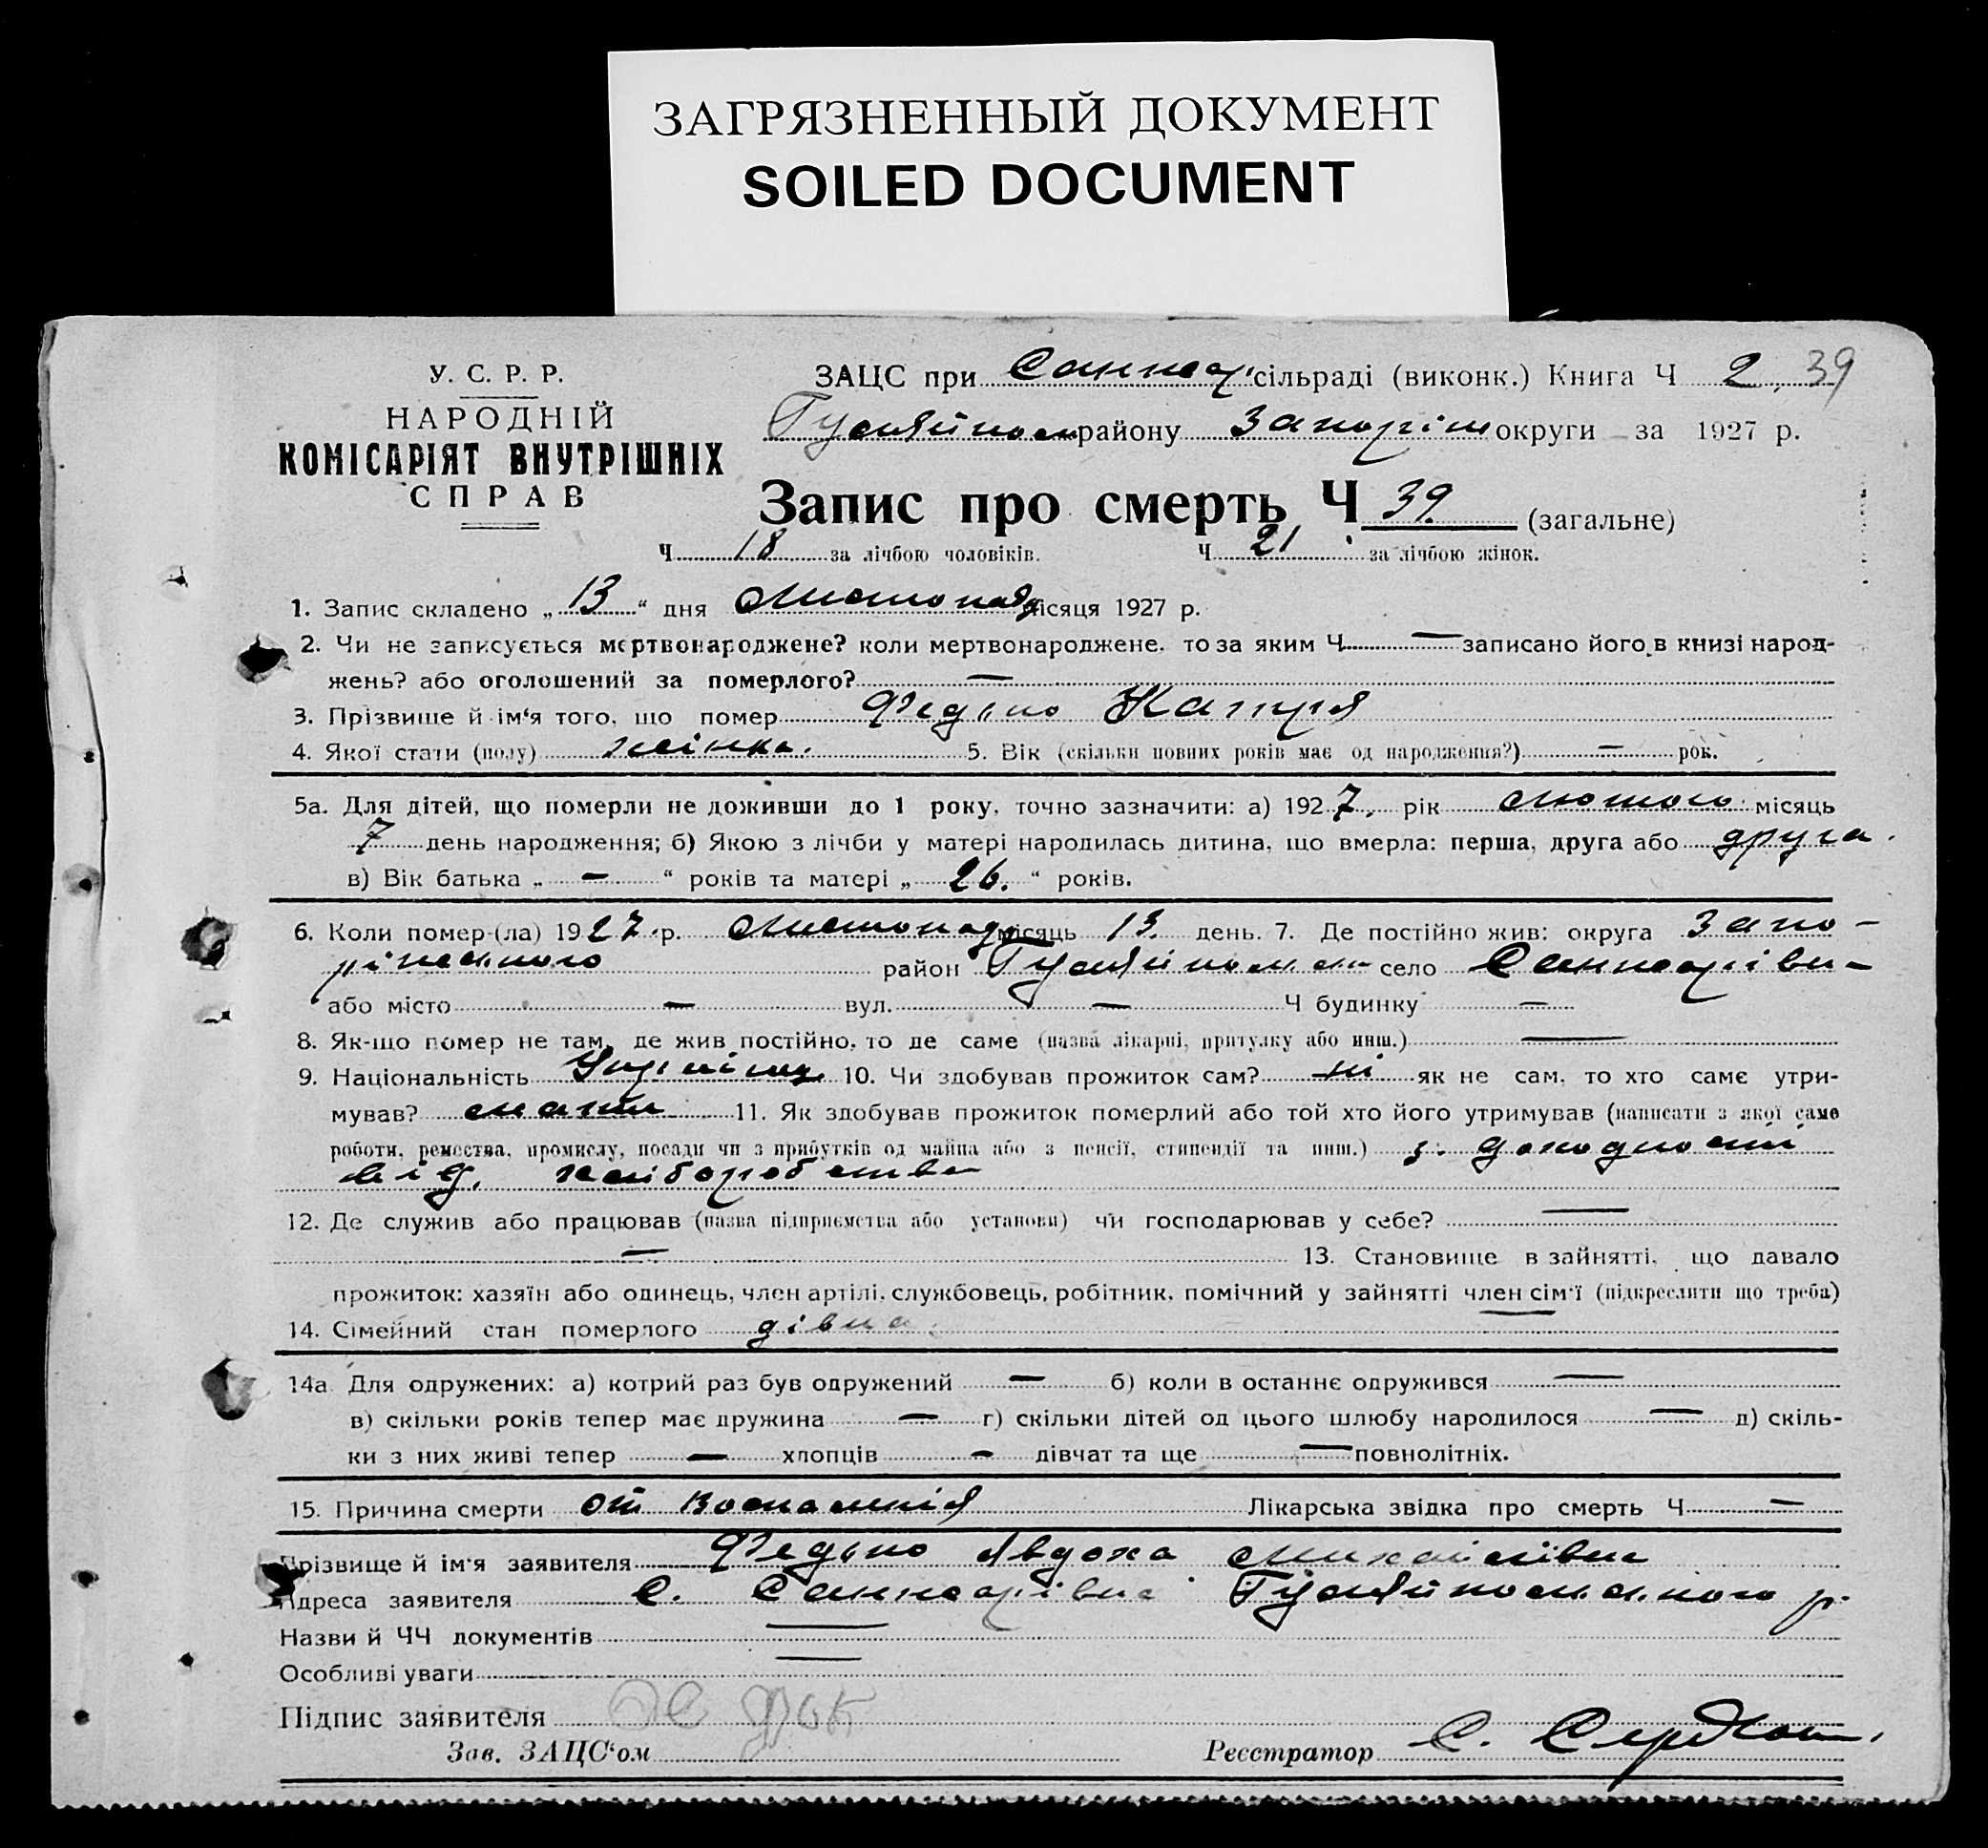 ЗАГРЯЗНЕННЫЙ ДОКУМЕНТ
SOILED DOCUMENT
У. С. Р. Р.
НАРОДНІЙ
КОМІСАРІЯТ ВНУТРІШНІХ
СПРАВ
ЗАЦС при Санжар. сільраді (виконк.) Книга Ч 2, 39
Гуляйпольськ району Запоріж округи за 1927 р.
Запис про смерть Ч 39. (загальне)
Ч 18 за лічбою чоловіків. Ч 21 за лічбою жінок.
1. Запис складено „ 13 “ дня Листопад місяця 1927 р.
2. Чи не записується мертвонароджене? коли мертвонароджене. то за яким Ч — записано його в книзі народ-
жень? або оголошений за померлого? —
3. Прізвище й ім‘я того, що помер Федько Катря
4. Якої стати (полу) жінка. 5. Вік (скільки повних років має од народження?) — рок.
5а. Для дітей, що померли не доживши до 1 року, точно зазначити: а) 1927. рік лютого місяць
7 день народження; б) Якою з лічби у матері народилась дитина, що вмерла: перша, друга або друга.
в) Вік батька „ — “ років та матері „ 26. “ років.
6. Коли помер-(ла) 1927 р. Листопад місяць 13. день. 7. Де постійно жив: округа Запо-
ріжського район Гуляйпольськ село Санжарівка
або місто — вул. — Ч будинку —
8. Як-що помер не там, де жив постійно, то де саме (назва лікарні, притулку або инш.) —
9. Національність 10. Чи здобував прожиток сам? ні як не сам, то хто саме утри-
мував? мати 11. Як здобував прожиток померлий або той хто його утримував (написати з якої саме
роботи, ремества, промислу, посади чи з прибутків од майна або з пенсії, стипендії та инш.) з доходности
від хліборобства
12. Де служив або працював (назва підприємства або установи) чи господарював у себе? —
— 13. Становище в зайнятті, що давало
прожиток: хазяїн або одинець, член артілі, службовець, робітник, помічний у зайнятті член сім‘ї (підкреслити що треба)
14. Сімейний стан померлого дівка —
14а Для одружених: а) котрий раз був одружений — б) коли в останнє одружився —
в) скільки років тепер має дружина — г) скільки дітей од цього шлюбу народилося — д) скіль-
ки з них живі тепер — хлопців — дівчат та ще — повнолітніх.
15. Причина смерти от воспаленія Лікарська звідка про смерть Ч —
Прізвище й ім‘я заявителя Федько Явдоха Михайлівна
Адреса заявителя с. Санжарівка Гуляйпольського р.
Назви й ЧЧ документів —
Особливі уваги —
Підпис заявителя
Зав. ЗАЦС‘ом Реєстратор С.